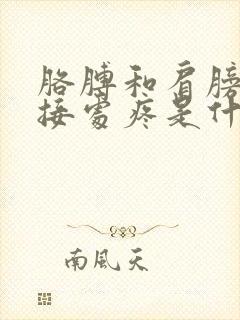 胳膊和肩膀
接處疼是什
南風天